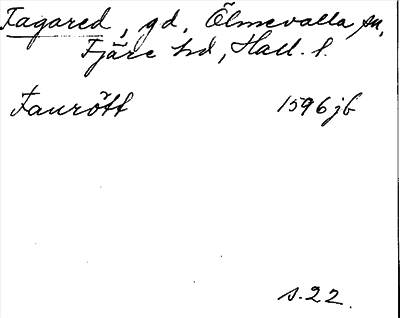 Fagared, gd, Ölmevalla sn,
Fjäre hd, Hall. l.
Faurött 1596 jb
s. 22.